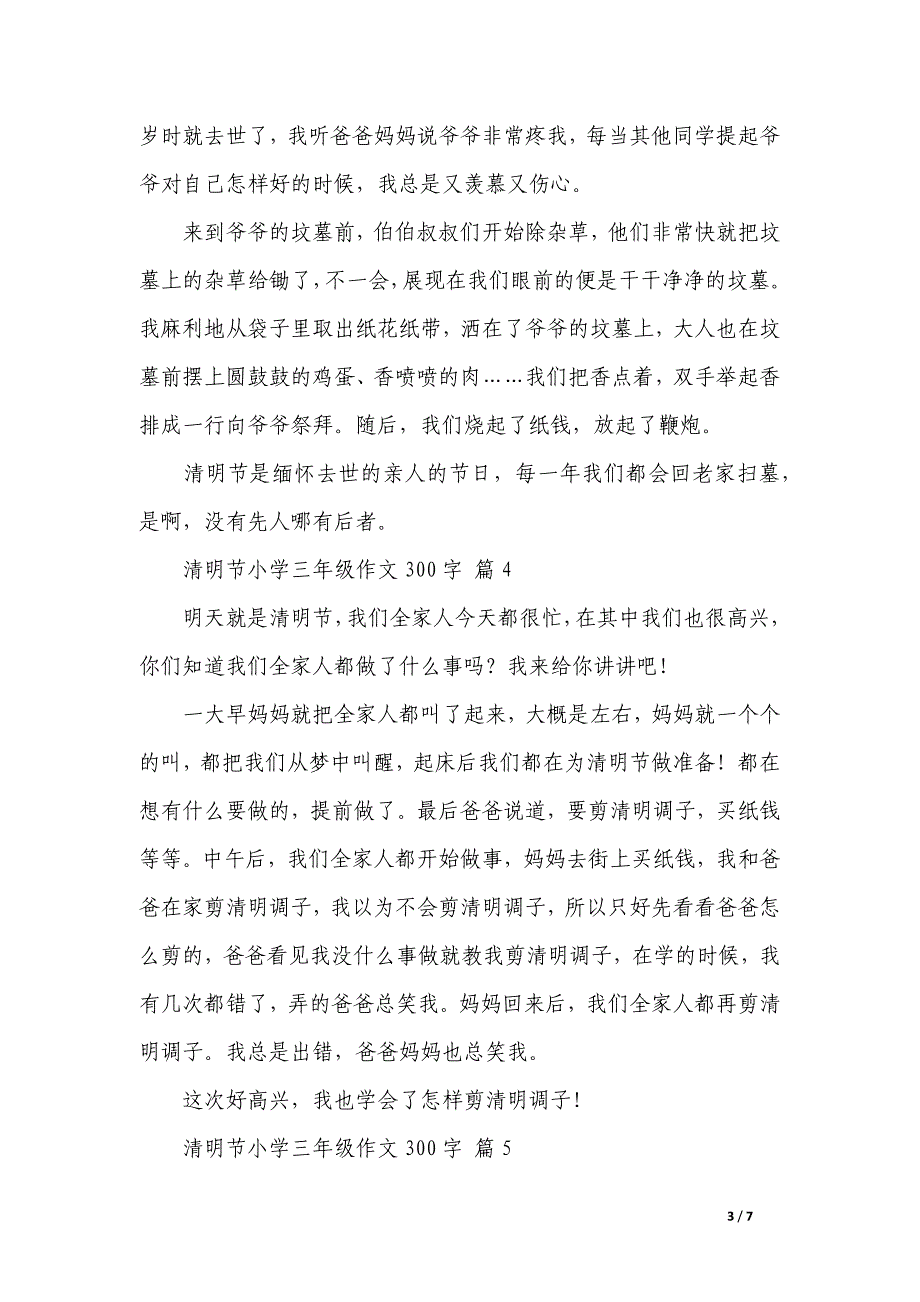 岁时就去世了，我听爸爸妈妈说爷爷非常疼我，每当其他同学提起爷
爷对自己怎样好的时候，我总是又羡慕又伤心。
来到爷爷的坟墓前，伯伯叔叔们开始除杂草，他们非常快就把坟
墓上的杂草给锄了，不一会，展现在我们眼前的便是干干净净的坟墓。
我麻利地从袋子里取出纸花纸带，洒在了爷爷的坟墓上，大人也在坟
墓前摆上圆鼓鼓的鸡蛋、香喷喷的肉……我们把香点着，双手举起香
排成一行向爷爷祭拜。随后，我们烧起了纸钱，放起了鞭炮。
清明节是缅怀去世的亲人的节日，每一年我们都会回老家扫墓，
是啊，没有先人哪有后者。
清明节小学三年级作文 300 字 篇 4
明天就是清明节，我们全家人今天都很忙，在其中我们也很高兴，
你们知道我们全家人都做了什么事吗？我来给你讲讲吧！
一大早妈妈就把全家人都叫了起来，大概是左右，妈妈就一个个
的叫，都把我们从梦中叫醒，起床后我们都在为清明节做准备！都在
想有什么要做的，提前做了。最后爸爸说道，要剪清明调子，买纸钱
等等。中午后，我们全家人都开始做事，妈妈去街上买纸钱，我和爸
爸在家剪清明调子，我以为不会剪清明调子，所以只好先看看爸爸怎
么剪的，爸爸看见我没什么事做就教我剪清明调子，在学的时候，我
有几次都错了，弄的爸爸总笑我。妈妈回来后，我们全家人都再剪清
明调子。我总是出错，爸爸妈妈也总笑我。
这次好高兴，我也学会了怎样剪清明调子！
清明节小学三年级作文 300 字 篇 5
3 / 7